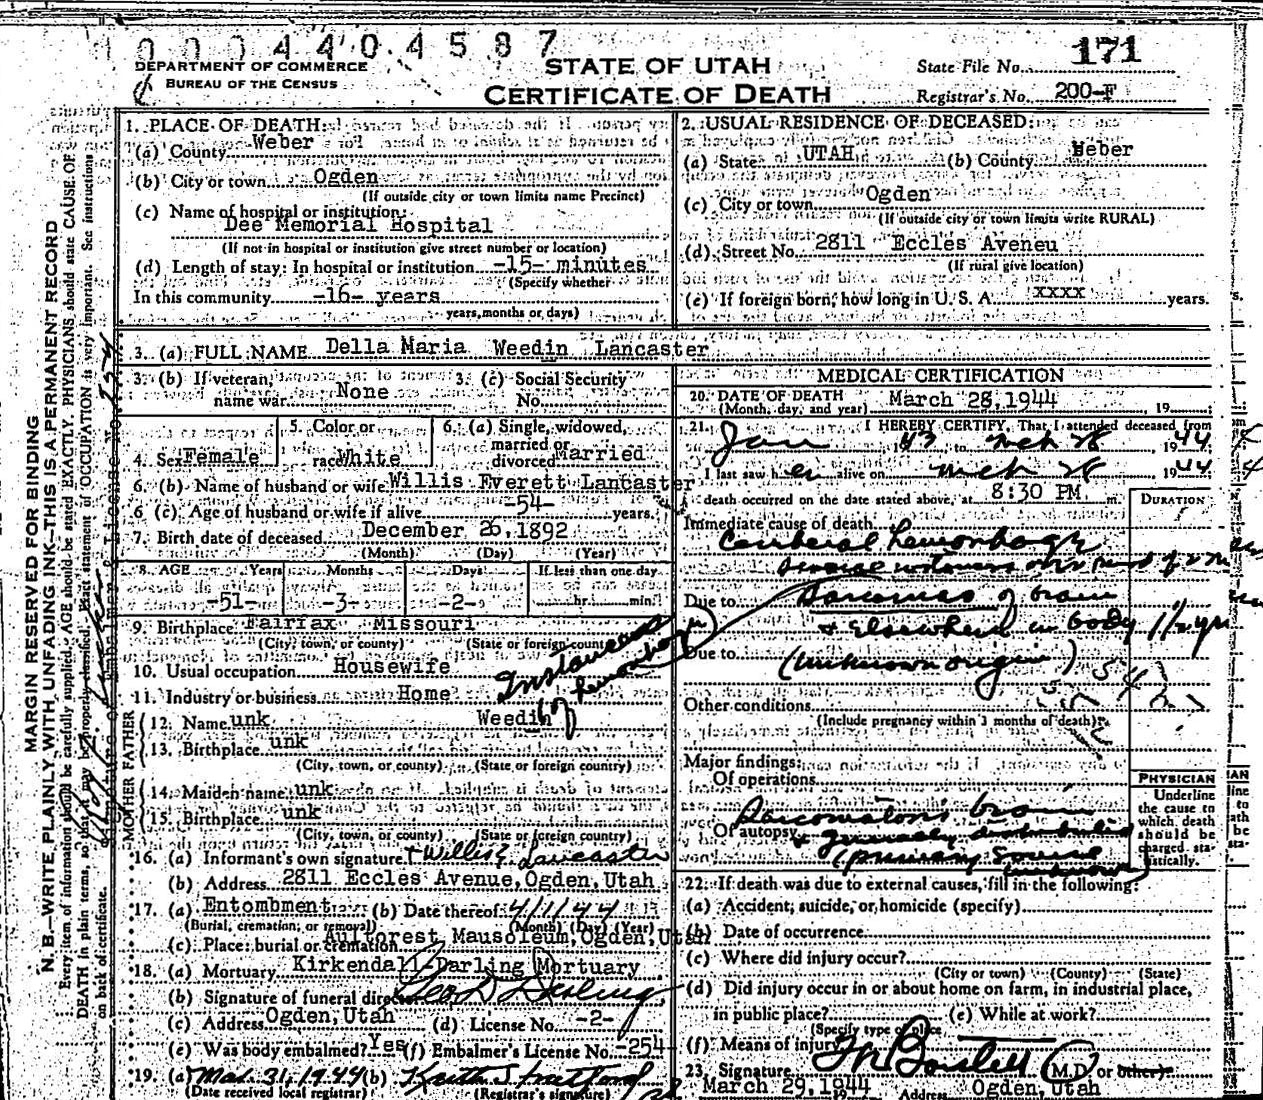 0004404587
DEPARTMENT OF COMMERCE
BUREAU OF THE CENSUS
STATE OF UTAH
CERTIFICATE OF DEATH
State File No. 171
Registrar's No. 200-F
MARGIN RESERVED FOR BINDING
N. B.—WRITE PLAINLY WITH UNFADING INK—THIS IS A PERMANENT RECORD
Every item of information should be carefully supplied. AGE should be stated EXACTLY. PHYSICIANS should state CAUSE OF
DEATH in plain terms, so that it may be properly classified. Exact statement of OCCUPATION is very important. See instructions
on back of certificate.
1. PLACE OF DEATH:
(a) County Weber
(b) City or town Ogden
(If outside city or town limits name Precinct)
(c) Name of hospital or institution:
Dee Memorial Hospital
(If not in hospital or institution give street number or location)
(d) Length of stay: In hospital or institution -15- minutes
(Specify whether
In this community -16- years
years, months or days)
2. USUAL RESIDENCE OF DECEASED:
(a) State UTAH (b) County Weber
(c) City or town Ogden
(If outside city or town limits write RURAL)
(d) Street No. 2811 Eccles Aveneu
(If rural give location)
(e) If foreign born, how long in U. S. A. xxxx years.
3. (a) FULL NAME Della Maria Weedin Lancaster
3. (b) If veteran, name war None
3. (c) Social Security No.
4. Sex Female
5. Color or race White
6. (a) Single, widowed, married or divorced Married
6. (b) Name of husband or wife Willis Everett Lancaster
6. (c) Age of husband or wife if alive -54- years.
7. Birth date of deceased December 26, 1892
(Month) (Day) (Year)
8. AGE Years Months Days If less than one day
-51- -3- -2- hr. min.
9. Birthplace Fairfax Missouri
(City, town, or county) (State or foreign country)
10. Usual occupation Housewife
11. Industry or business Home
FATHER
12. Name unk Weedin
13. Birthplace unk
(City, town, or county) (State or foreign country)
MOTHER
14. Maiden name unk
15. Birthplace unk
(City, town, or county) (State or foreign country)
16. (a) Informant's own signature Willis E Lancaster
(b) Address 2811 Eccles Avenue, Ogden, Utah
17. (a) Entombment (b) Date thereof 4/1/44
(Burial, cremation, or removal) (Month) (Day) (Year)
(c) Place: burial or cremation Aultorest Mausoleum, Ogden, Utah
18. (a) Mortuary Kirkendall-Darling Mortuary
(b) Signature of funeral director Geo D Darling
(c) Address Ogden, Utah (d) License No. -2-
(e) Was body embalmed? Yes (f) Embalmer's License No. -254
19. (a) Mar. 31, 1944 (b) Keith Stratford
(Date received local registrar) (Registrar's signature)
MEDICAL CERTIFICATION
20. DATE OF DEATH
(Month, day, and year) March 28, 1944, 19
21. I HEREBY CERTIFY, That I attended deceased from
Jan 43 to mch 28 1944
I last saw her alive on mch 28 1944
death occurred on the date stated above, at 8:30 PM m.
DURATION
Immediate cause of death
Cerebral hemorhage
Due to Sarcomas of brain
& Elsewhere in body 1 1/2 yrs
Due to (unknown origin)
Other conditions
(Include pregnancy within 3 months of death)
Major findings:
Of operations
Of autopsy Sarcomatosis brain
& generally distributed
(primary source
unknown)
PHYSICIAN
Underline
the cause to
which death
should be
charged sta-
tistically.
22. If death was due to external causes, fill in the following:
(a) Accident, suicide, or homicide (specify)
(b) Date of occurrence
(c) Where did injury occur?
(City or town) (County) (State)
(d) Did injury occur in or about home on farm, in industrial place,
in public place? (e) While at work?
(Specify type of place
(f) Means of injury
23. Signature (M.D. or other)
March 29, 1944 Address Ogden, Utah